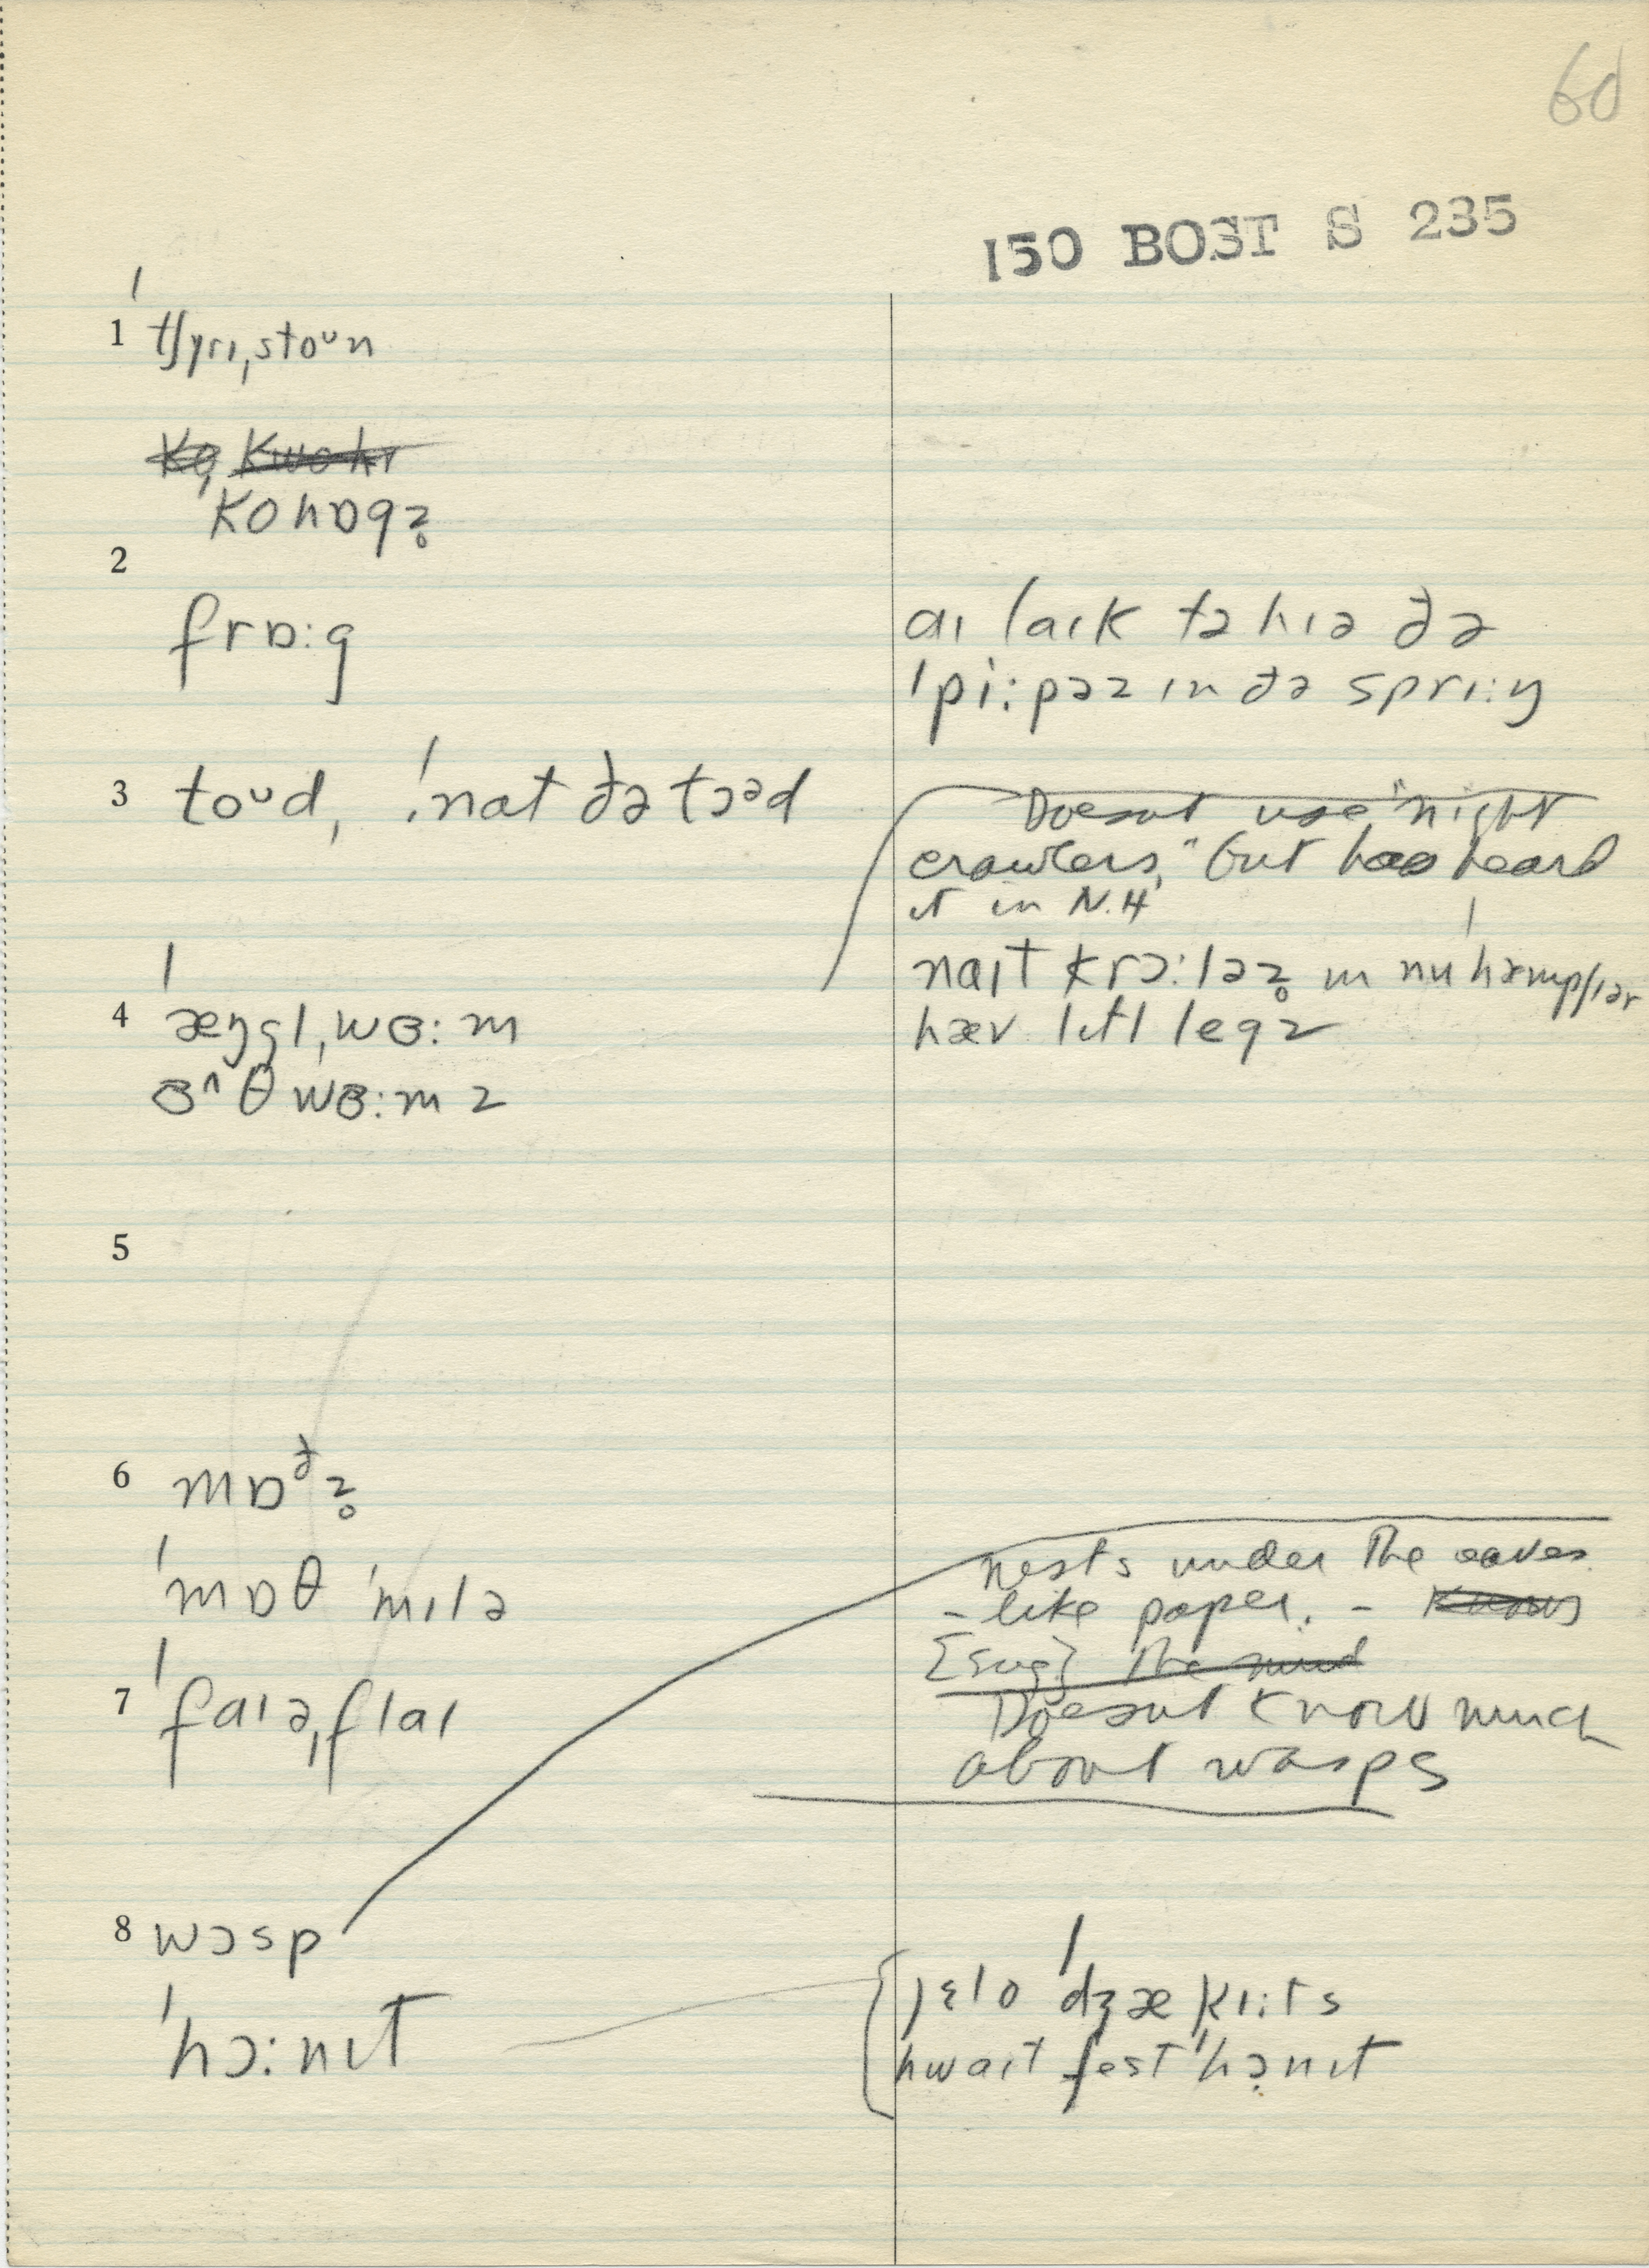 60
150 BOST S 235
1 ˈtʃɛrɪˌstoᴜn
ˈkohɒgz̥
2
frɒːg
aɪ laɪk tə hɪə ðə
ˈpiːpəz ɪn ðə sprɪːŋ
3 toᴜd, ˈnat ðə tɔəd
Doesnt use "night
crawlers," but has heard
it in N.H
naɪt krɔːləz̥ ɪn nu ˈhæmpʃɪər
hæv lɪtl legz
4 ˈæŋgl̩ˌwɞːm
ɞ^θ wɞːmz
5
6 mɒðz̥
ˈmɒθ ˈmɪlə
7 ˈfaɪəˌflaɪ
nests under the eaves
- like paper. -
[sug]
Doesnt know much
about wasps
8 wɔsp
ˈhɔːnɪt
jɛlo ˈdʒækɪːts
hwaɪt fest ˈhɔnɪt